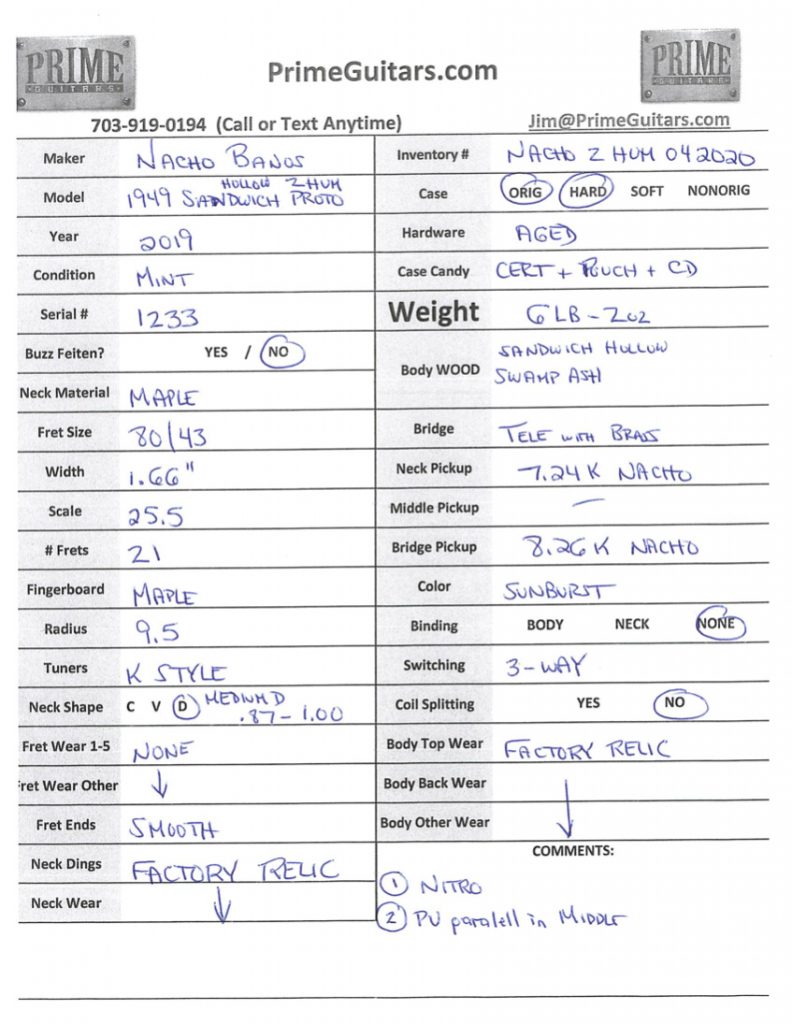 PRIME
GUITARS
PrimeGuitars.com
PRIME
GUITARS
703-919-0194 (Call or Text Anytime)
Jim@PrimeGuitars.com
Maker NACHO BANOS
Model HOLLOW 2 HUM
1949 SANDWICH PROTO
Year 2019
Condition MINT
Serial # 1233
Buzz Feiten? YES / NO
Neck Material MAPLE
Fret Size 80/43
Width 1.66"
Scale 25.5
# Frets 21
Fingerboard MAPLE
Radius 9.5
Tuners K STYLE
Neck Shape C V D MEDIUM D
.87-1.00
Fret Wear 1-5 NONE
Fret Wear Other ↓
Fret Ends SMOOTH
Neck Dings FACTORY RELIC
Neck Wear ↓
Inventory # NACHO 2 HUM 042020
Case ORIG HARD SOFT NONORIG
Hardware AGED
Case Candy CERT + POUCH + CD
Weight 6 LB - 2 OZ
Body WOOD SANDWICH HOLLOW
SWAMP ASH
Bridge TELE WITH BRASS
Neck Pickup 7.24K NACHO
Middle Pickup —
Bridge Pickup 8.26K NACHO
Color SUNBURST
Binding BODY NECK NONE
Switching 3-WAY
Coil Splitting YES NO
Body Top Wear FACTORY RELIC
Body Back Wear
Body Other Wear ↓
COMMENTS:
1 NITRO
2 PU paralell in MIDDLE